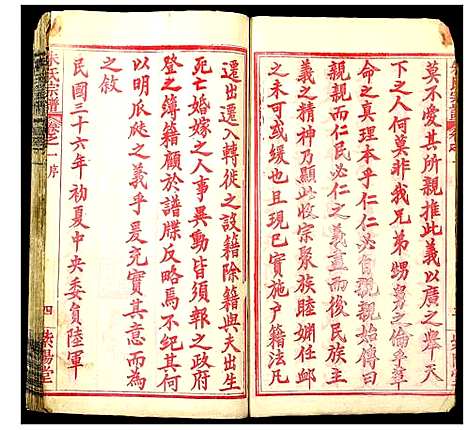 莫不愛其所親推此義以廣之舉天
下之人何莫非我兄弟甥舅之倫乎革
命之真理本乎仁仁必自親親始傳曰
親親而仁民必仁之義盡而後民族主
義之精神乃大顯此收宗聚族睦婣任卹
未可或緩也且現已實施戶籍法凡
遷出遷入轉徙之設籍除籍與夫出生
死亡婚嫁之人事異動皆須報之政府
登之簿籍顧於譜牒反略焉不紀其何
以明瓜瓞之義乎爰充實其意而為
之敘
民國三十六年初夏中央委員陸軍
朱氏宗譜
卷之一 序
四
紫陽堂